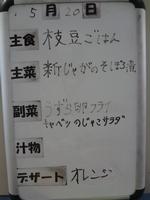 5月20日
主食 枝豆ごはん
主菜 新じゃがのそぼろ煮
副菜 うずら卵フライ
キャベツのじゃこサラダ
汁物
デザート オレンジ